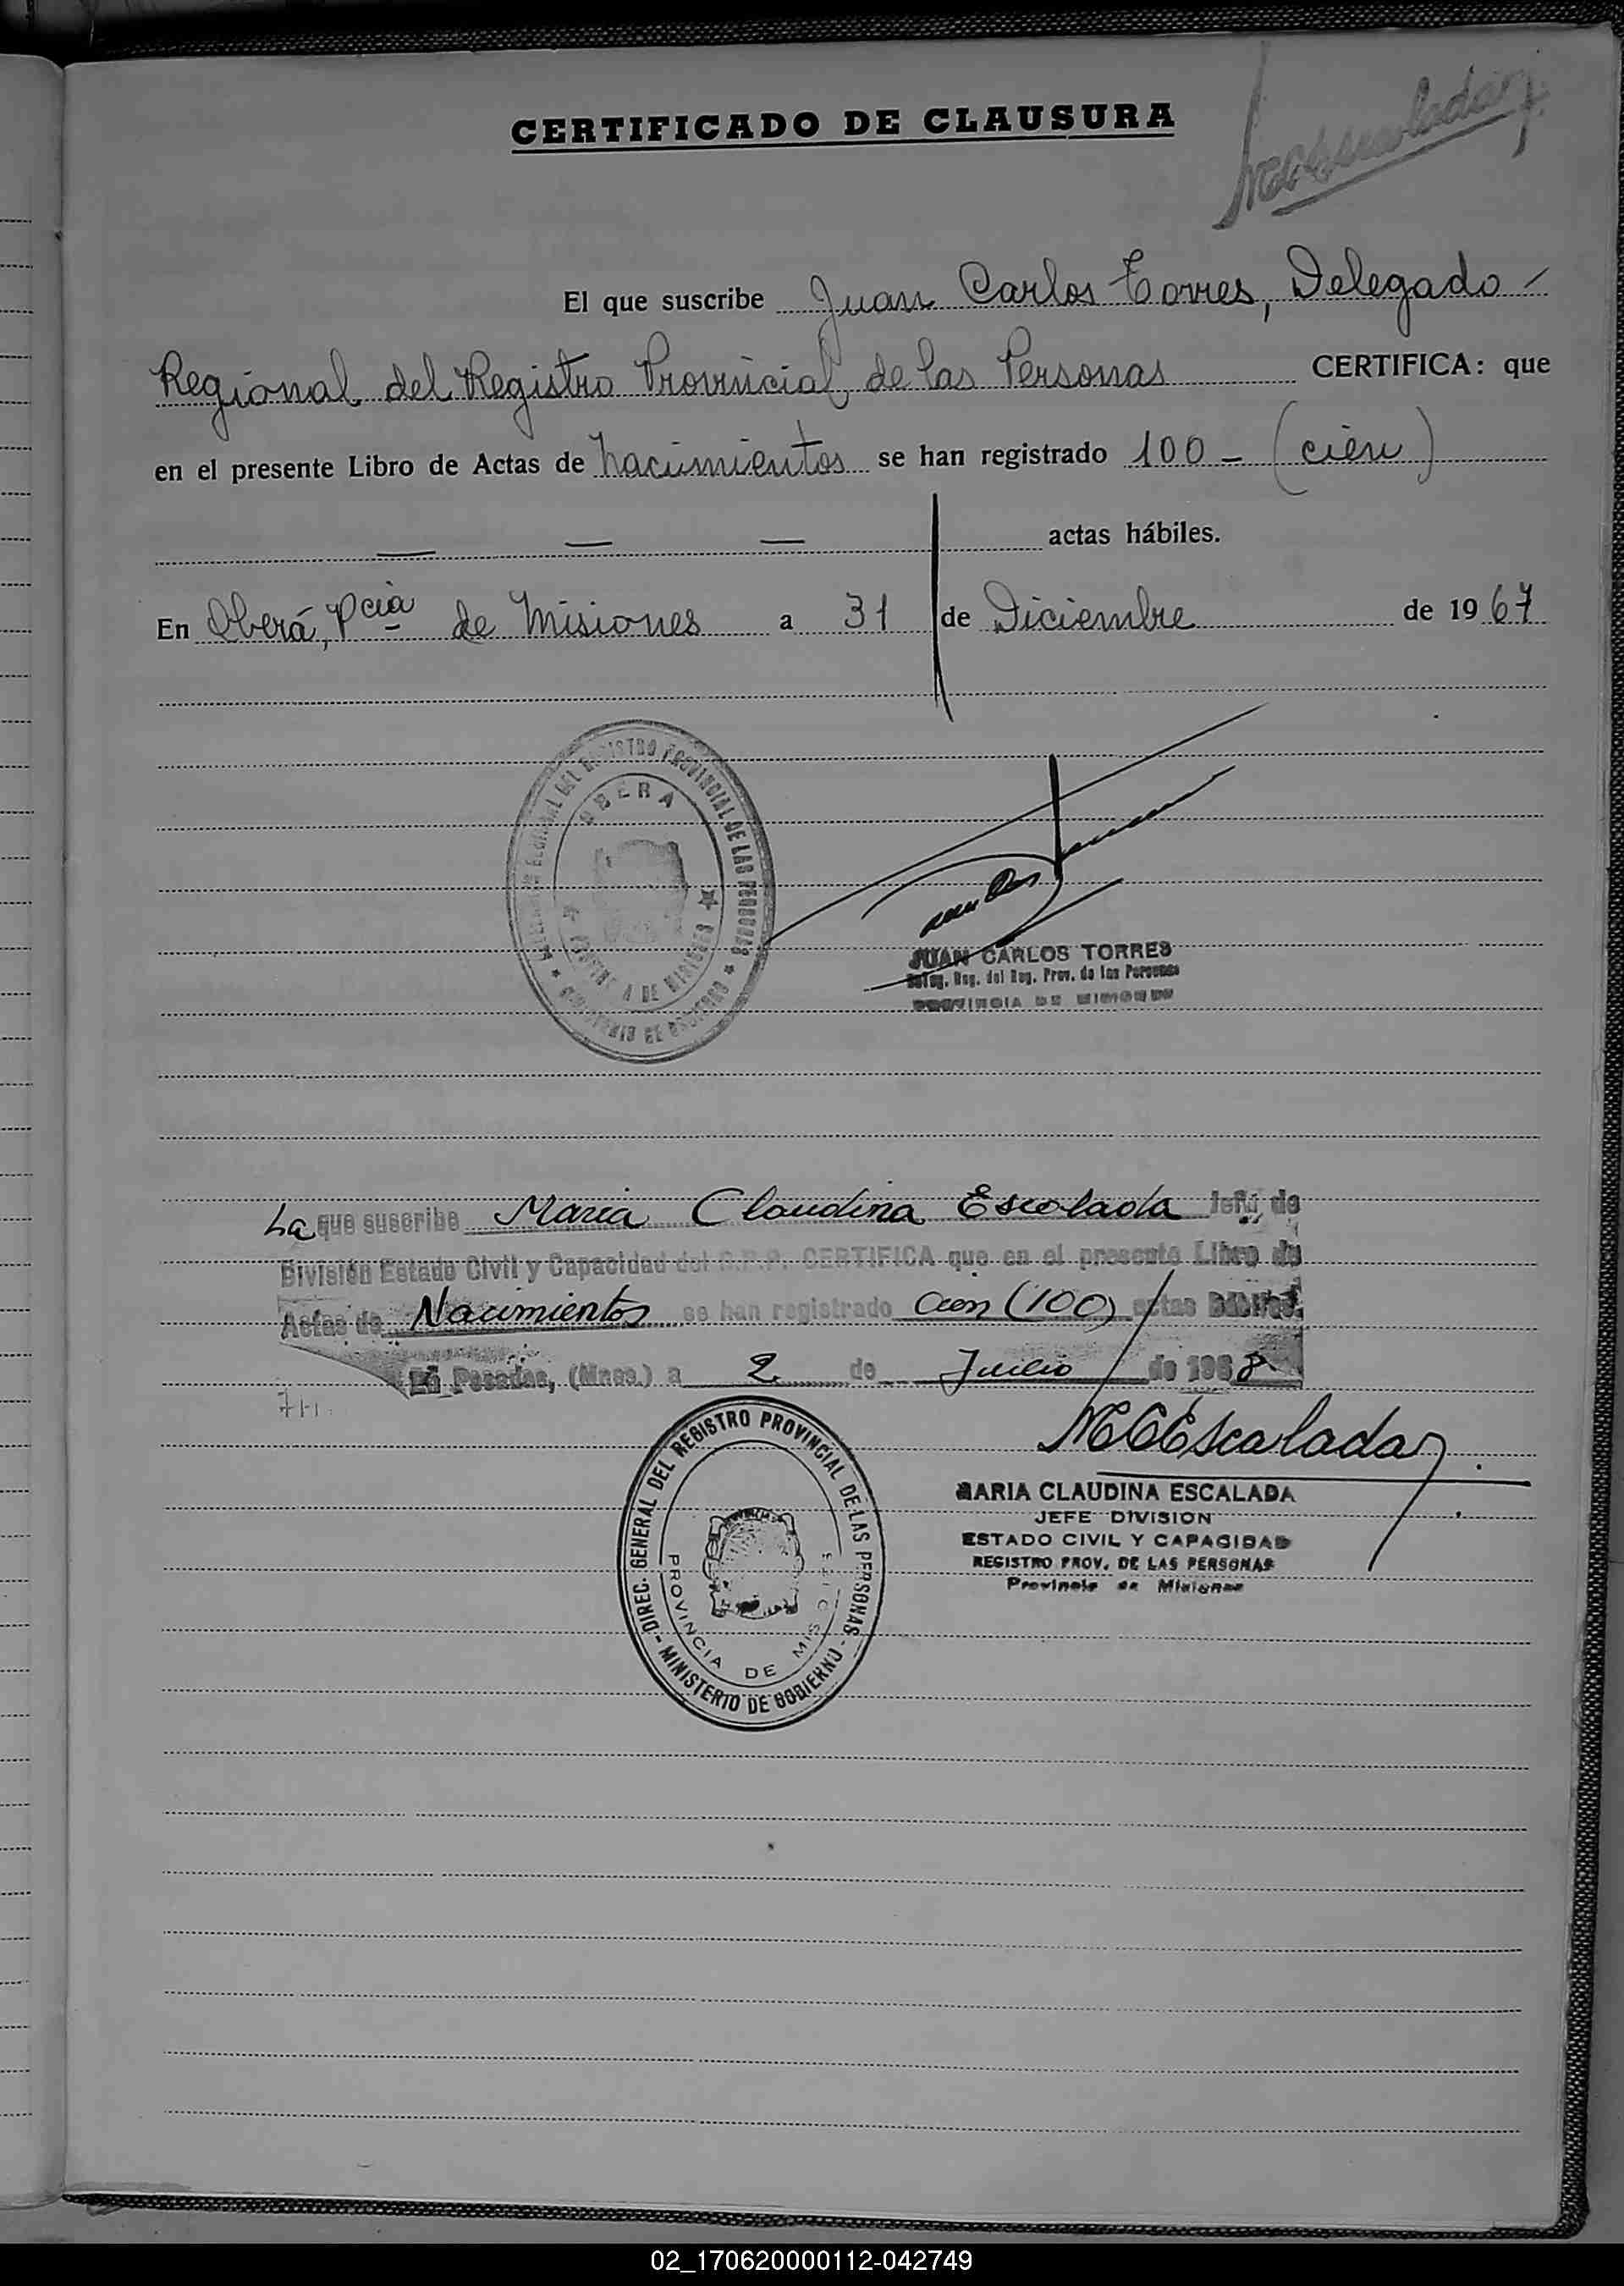 CERTIFICADO DE CLAUSURA
MCEscalada
El que suscribe Juan Carlos Torres, Delegado
Regional del Registro Provincial de las Personas CERTIFICA: que
en el presente Libro de Actas de Nacimientos se han registrado 100 - (cien)
— — — actas hábiles.
En Oberá, Pcia de Misiones a 31 de Diciembre de 1967
OBERA
REGISTRO PROVINCIAL DE LAS PERSONAS
JUAN CARLOS TORRES
Deleg. Reg. del Reg. Prov. de las Personas
PROVINCIA DE MISIONES
La que suscribe Maria Claudina Escalada Jefe de
División Estado Civil y Capacidad del C.P.P. CERTIFICA que en el presente Libro de
Actas de Nacimientos se han registrado Cien (100) actas hábiles.
En Posadas, (Mnes.) a 2 de Julio de 1968
MCEscalada
DIREC. GENERAL DEL REGISTRO PROVINCIAL DE LAS PERSONAS - MINISTERIO DE GOBIERNO -
PROVINCIA DE MISIONES
MARIA CLAUDINA ESCALADA
JEFE DIVISION
ESTADO CIVIL Y CAPACIDAD
REGISTRO PROV. DE LAS PERSONAS
Provincia de Misiones
02_170620000112-042749